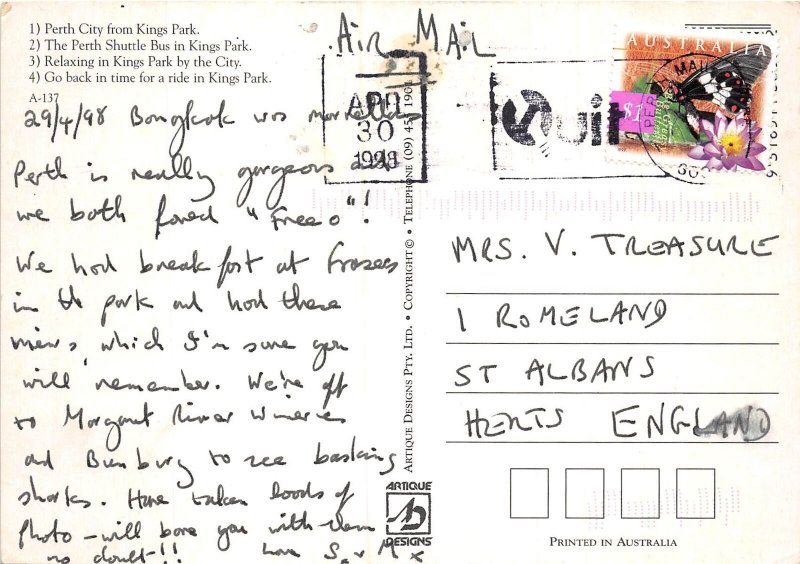 1) Perth City from Kings Park.
2) The Perth Shuttle Bus in Kings Park.
3) Relaxing in Kings Park by the City.
4) Go back in time for a ride in Kings Park.
A-137
AIR MAIL
APR
30
1998
Quit
AUSTRALIA
$1
29/4/98 Bongkok was marvellous
Perth is really gorgeous and
we both loved "Freo"!
We had breakfast at Frasers
in the park and had these
views which I'm sure you
will remember. We're off
to Margaret River Wineries
and Bunbury to see basking
sharks. Have taken loads of
photo - will bore you with them
no doubt!!
Love S. & M x
Artique Designs Pty. Ltd. • Copyright © • Telephone (09) 451 1901
MRS. V. TREASURE
1 ROMELAND
ST ALBANS
HERTS ENGLAND
ARTIQUE
DESIGNS
Printed in Australia